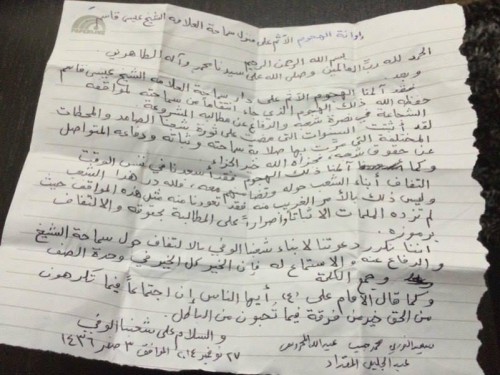 إدانة الهجوم الآثم على منزل سماحة العلامة الشيخ عيسى قاسم
بسم الله الرحمن الرحيم
الحمد لله رب العالمين وصلى الله على سيدنا محمد وآله الطاهرين
وبعد
فقد آلمنا الهجوم الآثم على دار سماحة العلامة الشيخ عيسى قاسم
حفظه الله ذلك الهجوم الذي جاء انتقاماً من سماحته لمواقفه
الشجاعة في نصرة شعبه والدفاع عن مطالبه المشروعة.
لقد أثبتت السنوات التي مضت على ثورة شعبنا الصامد والمحطات
المختلفة التي مرّت بها صلابة سماحته وثباته ودفاعه المتواصل
عن حقوق شعبه، فجزاه الله خير الجزاء.
وكما آلمنا ذلك الهجوم فقد أسعدنا في نفس الوقت
التفاف أبناء الشعب حوله وتضامنهم معه، فلله در هذا الشعب
وليس ذلك بالأمر الغريب منه فقد تعودنا منه مثل هذه المواقف حيث
لم تزده الملمات الا ثباتا وإصراراً على المطالبة بحقوقه والالتفاف
برموزه.
إننا نكرر دعوتنا لأبناء شعبنا الوفي بالالتفاف حول سماحة الشيخ
والدفاع عنه والاستماع له فإن الخير كل الخير في وحدة الصف
وجمع الكلمة
وكما قال الإمام علي (ع) أيها الناس إن اجتماعاً فيما تكرهون
من الحق خير من فرقة فيما تحبون من الباطل.
والسلام على شعبنا الوفي
سعيد النوري محمد حبيب عبدالله المحروس
عبدالجليل المقداد
٢٧ نوفمبر ٢٠١٤ الموافق ٣ صفر ١٤٣٦